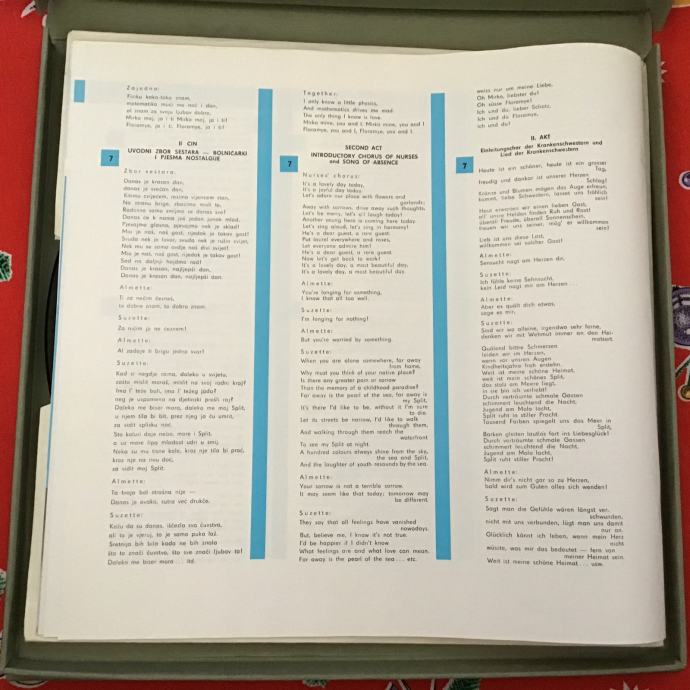 Zajedno:
Fiziku kako-tako znam,
matematika muči me noć i dan,
al znam za svoju ljubav dobro,
Mirko moj, ja i ti Mirko moj, ja i ti!
Floramye, ja i ti. Floramye, ja i ti!
II CIN
7
UVODNI ZBOR SESTARA — BOLNIČARKI
I PJESMA NOSTALGIJE
Zbor sestara:
Danas je krasan dan,
danas je srećan dan,
Kitimo cvijećem, kitimo vijencem stan,
Na stranu brige, zbacimo misli te,
Radosno samo smijmo se danas sve!
Danas će k nama još jedan junak mlad.
Pjevajmo glasno, pjevajmo nek je sklad!
Mio je naš, naš gost, rijedak je takav gost!
Svuda nek je lovor, svuda nek je ružin svijet,
Nek mu se samo ovdje naš divi svijet!
Mio je naš, naš gost, rijedak je takav gost!
Sad na daljnji hajdmo rad!
Danas je krasan, najljepši dan,
Danas je krasan, najljepši dan.
Almette:
Ti za nečim čezneš,
to dobro znam, to dobro znam.
Suzette:
Za ničim ja ne čeznem!
Almette:
Al zadaje ti brigu jedna stvar!
Suzette:
Kad si negdje sama, daleko u svijetu,
zašto mislit moraš, mislit na svoj rodni kraj?
Ima l' teže boli, ima l' težeg jada?
neg je uspomena na djetinski prošli raj?
Daleko me biser mora, daleko me moj Split,
u njem tila bi bit, prez njeg ja ću umrit,
za vidit splitsku noć.
Sto kaluri daje nebo, more i Split,
a uz more lipo mladost udri u smij.
Neka su mu tisne kale, kroz nje tila bi proć,
kroz nje na rivu doć,
za vidit moj Split.
Almette:
Ta tvoja bol strašna nije —
Danas je ovako, sutra već drukče.
Suzette:
Kažu da su danas, iščezla sva čuvstva,
ali to je vjeruj, to je samo puka laž.
Sretnija bih bila kada ne bih znala
što to znači čuvstvo, što sve znači ljubav ta!
Daleko me biser mora . . . itd.
Together:
I only know a little physics,
And mathematics drives me mad.
The only thing I know is love.
Mirko mine, you and I. Mirko mine, you and I
Floramye, you and I, Floramye, you and I.
SECOND ACT
7
INTRODUCTORY CHORUS OF NURSES
and SONG OF ABSENCE
Nurses' chorus:
It's a lovely day today,
It's a joyful day today.
Let's adorn our place with flowers and
garlands;
Away with sorrows, drive away such thoughts,
Let's be merry, let's all laugh today!
Another young hero is coming here today.
Let's sing aloud, let's sing in harmony!
He's a dear guest, a rare guest.
Put laurel everywhere and roses,
Let everyone admire him!
He's a dear guest, a rare guest.
Now let's get back to work!
It's a lovely day, a most beautiful day,
It's a lovely day, a most beautiful day.
Almette:
You're longing for something,
I know that all too well.
Suzette:
I'm longing for nothing!
Almette:
But you're worried by something.
Suzette:
When you are alone somewhere, far away
from home,
Why must you think of your native place?
Is there any greater pain or sorrow
Than the memory of a childhood paradise?
Far away is the pearl of the sea, far away is
my Split,
It's there I'd like to be, without it I'm sure
to die
Let its streets be narrow, I'd like to walk
through them,
And walking through them reach the
waterfront
To see my Split at night.
A hundred colours always shine from the sky,
the sea and Split,
And the laughter of youth resounds by the sea.
Almette:
Your sorrow is not a terrible sorrow.
It may seem like that today; tomorrow may
be different.
Suzette:
They say that all feelings have vanished
nowadays.
But, believe me, I know it's not true.
I'd be happier if I didn't know
What feelings are and what love can mean.
Far away is the pearl of the sea . . . etc.
weiss nur um meine Liebe,
Oh Mirko, liebster du!
Oh süsse Floramye!
Ich und du, lieber Schatz,
Ich und du Floramye,
Ich und du!
II. AKT
7
Einleitungschor der Krankenschwestern und
Lied der Krankenschwestern
Heute ist ein schöner, heute ist ein grosser
Tag,
freudig und dankbar ist unserer Herzen
Schlag!
Kränze und Blumen mögen das Auge erfreun,
kommt, liebe Schwestern, lasset uns fröhlich
sein!
Heut erwarten wir einen lieben Gast,
all' unsre Helden finden Ruh und Rast!
überall Freude, überall Sonnenschein,
freuen wir uns seiner, mög' er willkommen
sein!
Lieb ist uns diese Last,
willkommen sei solcher Gast!
Almette:
Sehnsucht nagt am Herzen dir,
Suzette:
Ich fühle keine Sehnsucht,
kein Leid nagt mir am Herzen . . .
Almette:
Aber es quält dich etwas,
sage es mir,
Suzette:
Sind wir wo alleine, irgendwo sehr ferne,
denken wir mit Wehmut immer an den Hei-
matsort.
Quälend bittre Schmerzen
leiden wir im Herzen,
wenn vor unsren Augen
Kindheitsjahre froh erstehn.
Weit ist meine schöne Heimat,
weit ist mein schönes Split,
das stolz am Meere liegt,
in sie bin ich verliebt!
Durch verträumte schmale Gassen
schimmert leuchtend die Nacht,
Jugend am Molo lacht,
Split ruht in stiller Pracht!
Tausend Farben spiegelt uns das Meer in
Split,
Barken gleiten lautlos fort ins Liebesglück!
Durch verträumte schmale Gassen
schimmert leuchtend die Nacht,
Jugend am Molo lacht,
Split ruht stiller Pracht!
Almette:
Nimm dir's nicht gar so zu Herzen,
bald wird zum Guten alles sich wenden!
Suzette:
Sagt man die Gefühle wären längst ver-
schwunden,
nicht mit uns verbunden, lügt man uns damit
nur an.
Glücklich könnt ich leben, wann mein Herz
nicht
wüsste, was mir das bedeutet — fern von
meiner Heimat sein.
Weit ist meine schöne Heimat . . . usw.